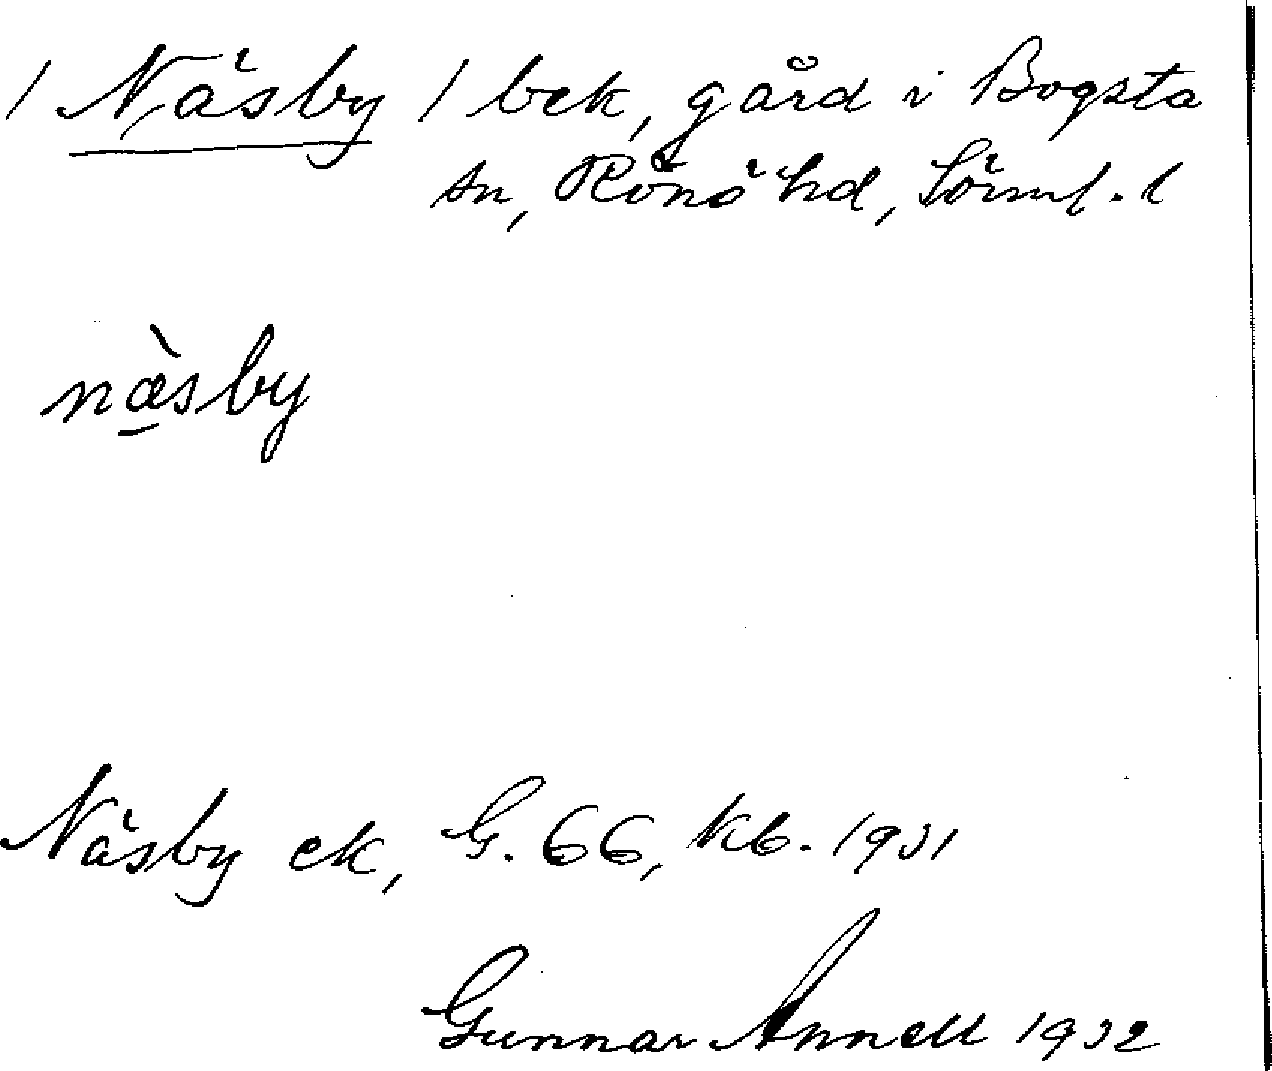 / Näsby / bek, gård i Bogsta
sn, Rönö hd, Sörml. l
næ̀sby
Näsby ek, G. 66, Kb. 1931
Gunnar Annell 1932